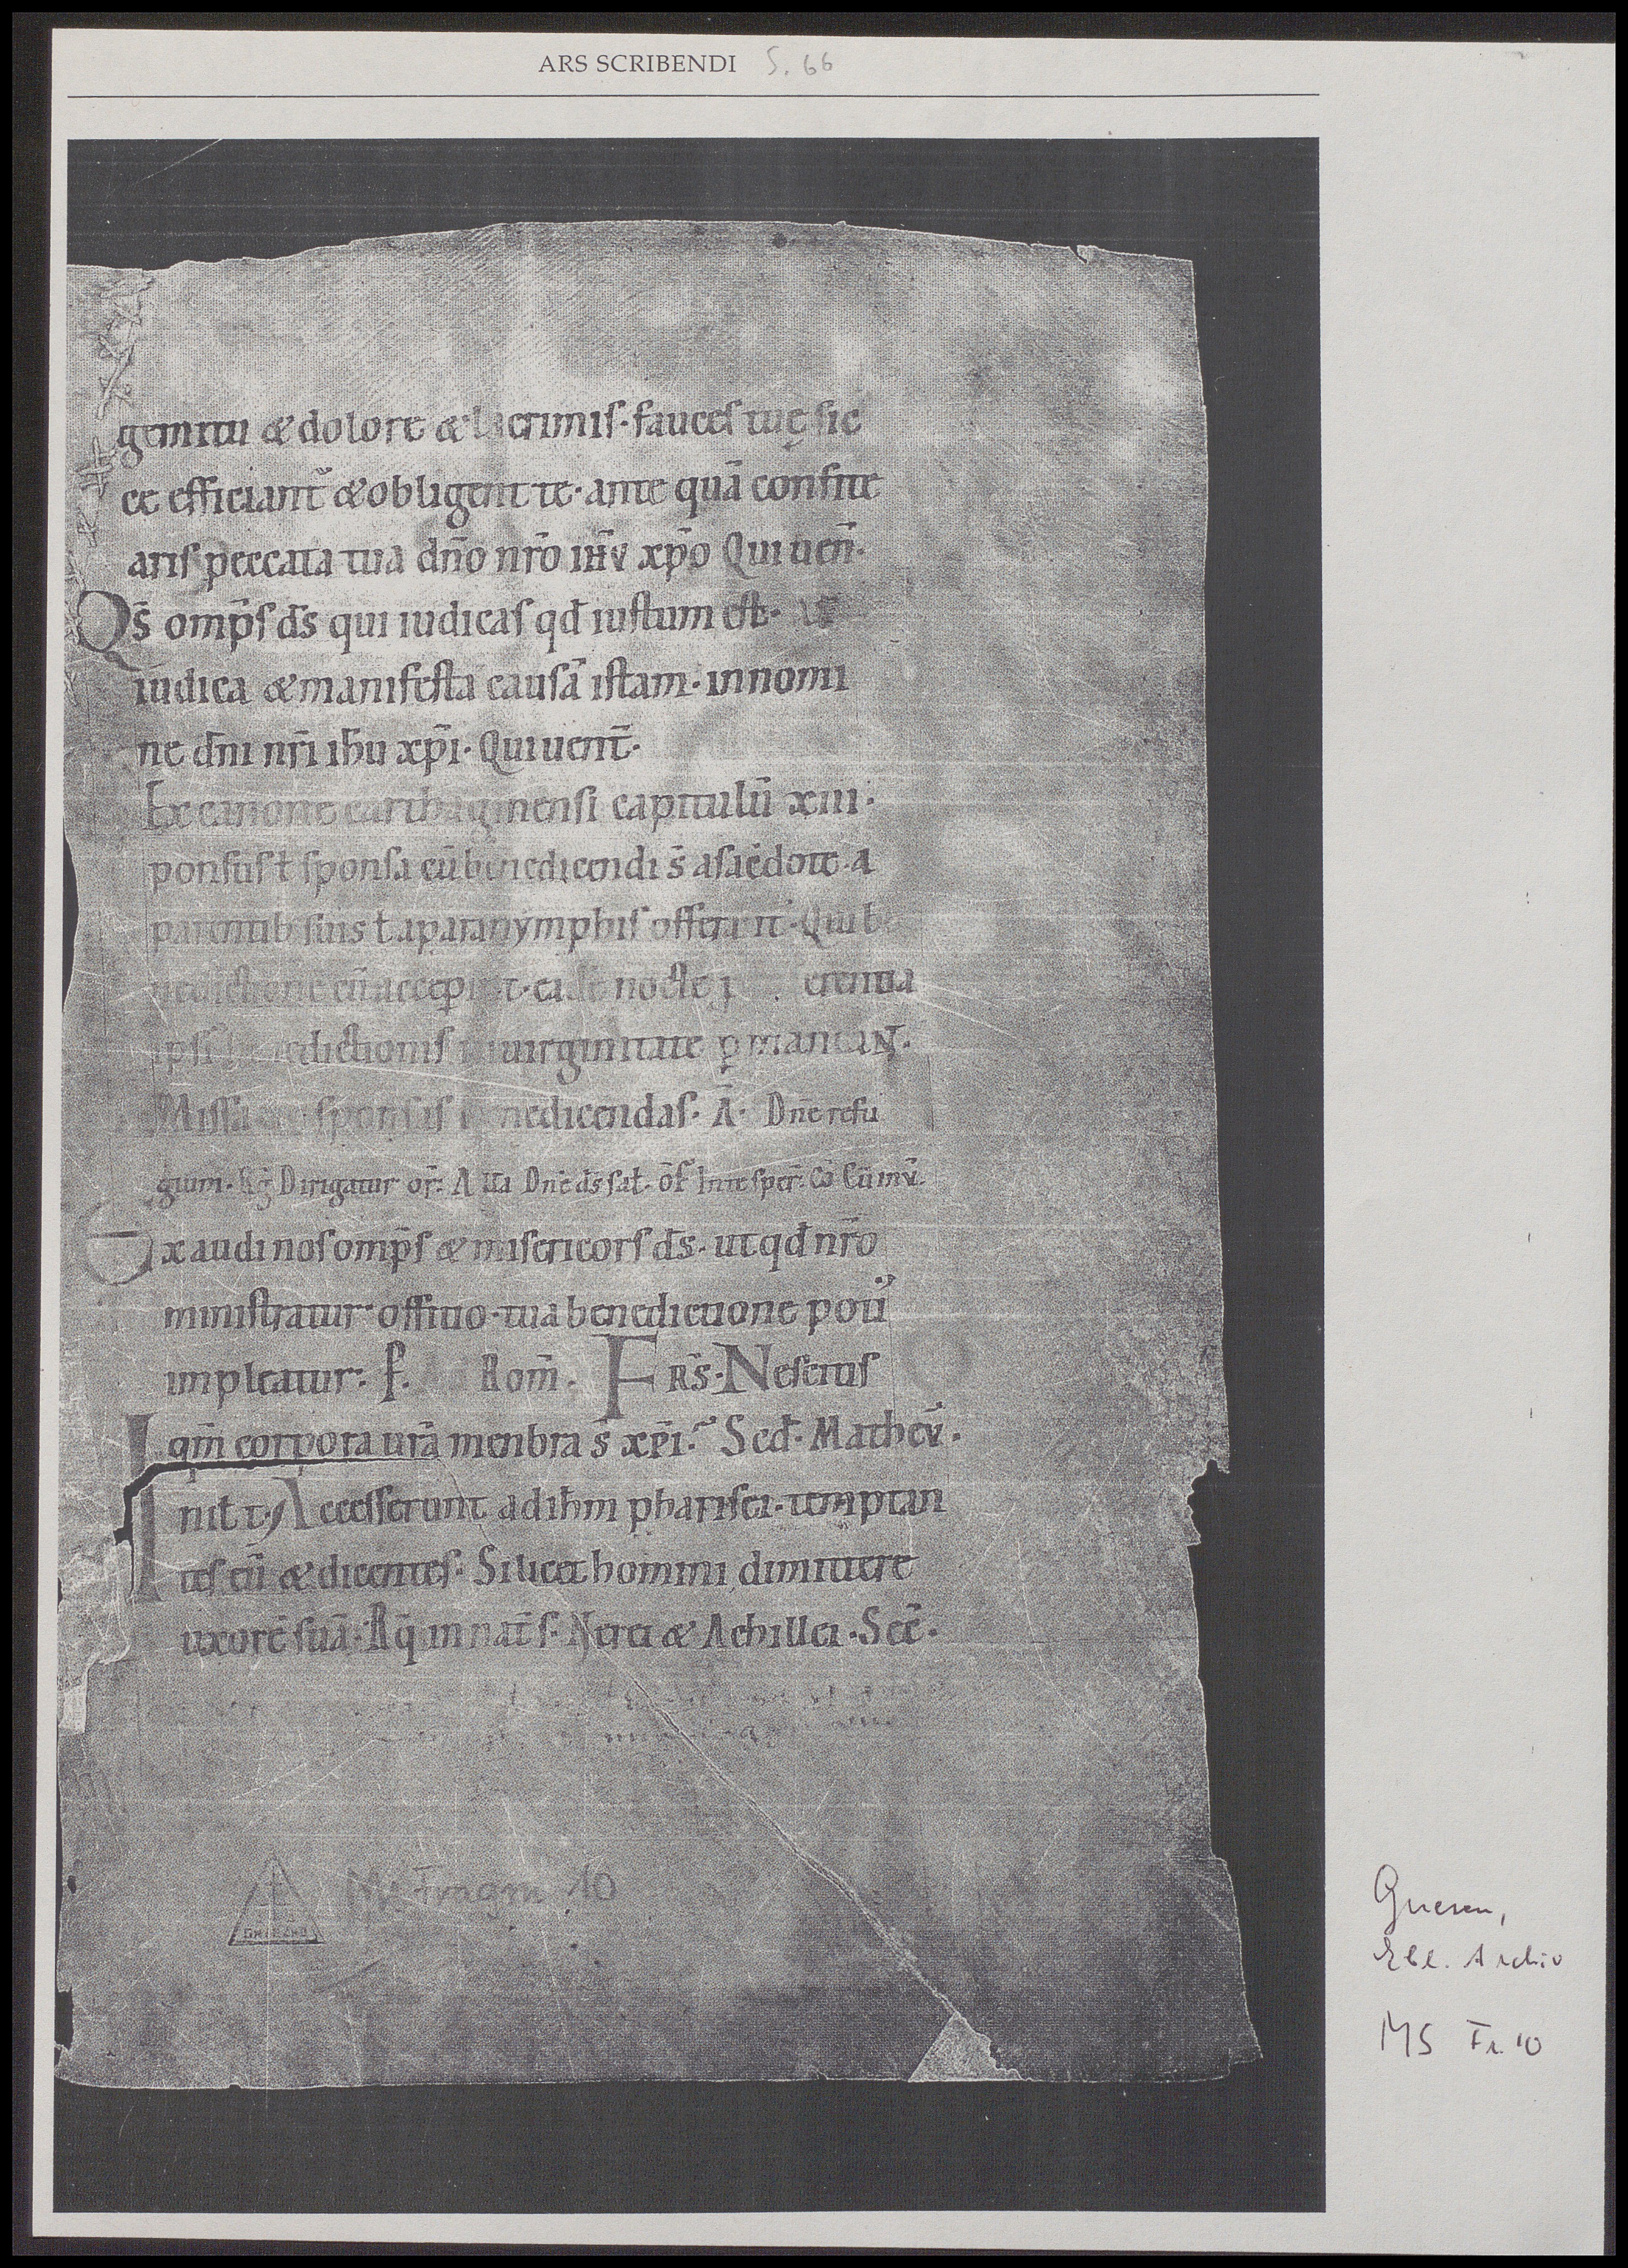 ARS SCRIBENDI S. 66
gemitu & dolore & lacrimis · fauces tuę sic
ce efficiant̄ & obligent te · ante quā confite
aris peccata tua dn̄o nr̄o ihv̄ xp̄o Qui uen̄ ·
Qs̄ omp̄s ds̄ qui iudicas qđ iustum est ·
iudica & manifesta causā istam · in nomi
ne dn̄i nr̄i ih̄u xp̄i · Qui uent̄ ·
Ex canone carthaginensi capitulū xiii ·
ponsus ł sponsa cū benedicendi s̄ a sacēdote · a
parentib suis ł a paranymphis offerant · Qui b
nedictione cū acceperint · eadē nocte p erentia
ipsi benedictionis in uirginitate ꝑmaneaN ·
Missa sponsas benedicendas · A · Dn̄e refu
gium · Dirigatur or̄ : A lła Dn̄e ds̄ sał · of̄ In te sper̄ : Cō Cū inv̄ ·
Exaudi nos omp̄s & misericors ds̄ · ut qđ nr̄o
ministratur offitio · tua benedictione poti᷒
impleatur : Rom̄ · FRS̄ · Nescitis
qm̄ corpora urā menbra s̄ xp̄i : Scđ · Mathev̄ ·
I nił t · Accesserunt ad ih̄m pharisei · temptan
tes eū & dicentes : Si licet homini dimittere
uxorē suā · Rq̄ in nat̄ s · Nerei & Achillei · Sēc ·
Ms Fragm 10
GNIEZNO
Gnesen,
Ebl. Archiv
MS Fr. 10